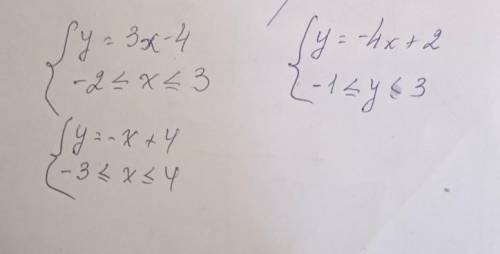 y = 3x - 4
-2 ≤ x ≤ 3
y = -4x + 2
-1 ≤ y ≤ 3
y = -x + 4
-3 ≤ x ≤ 4